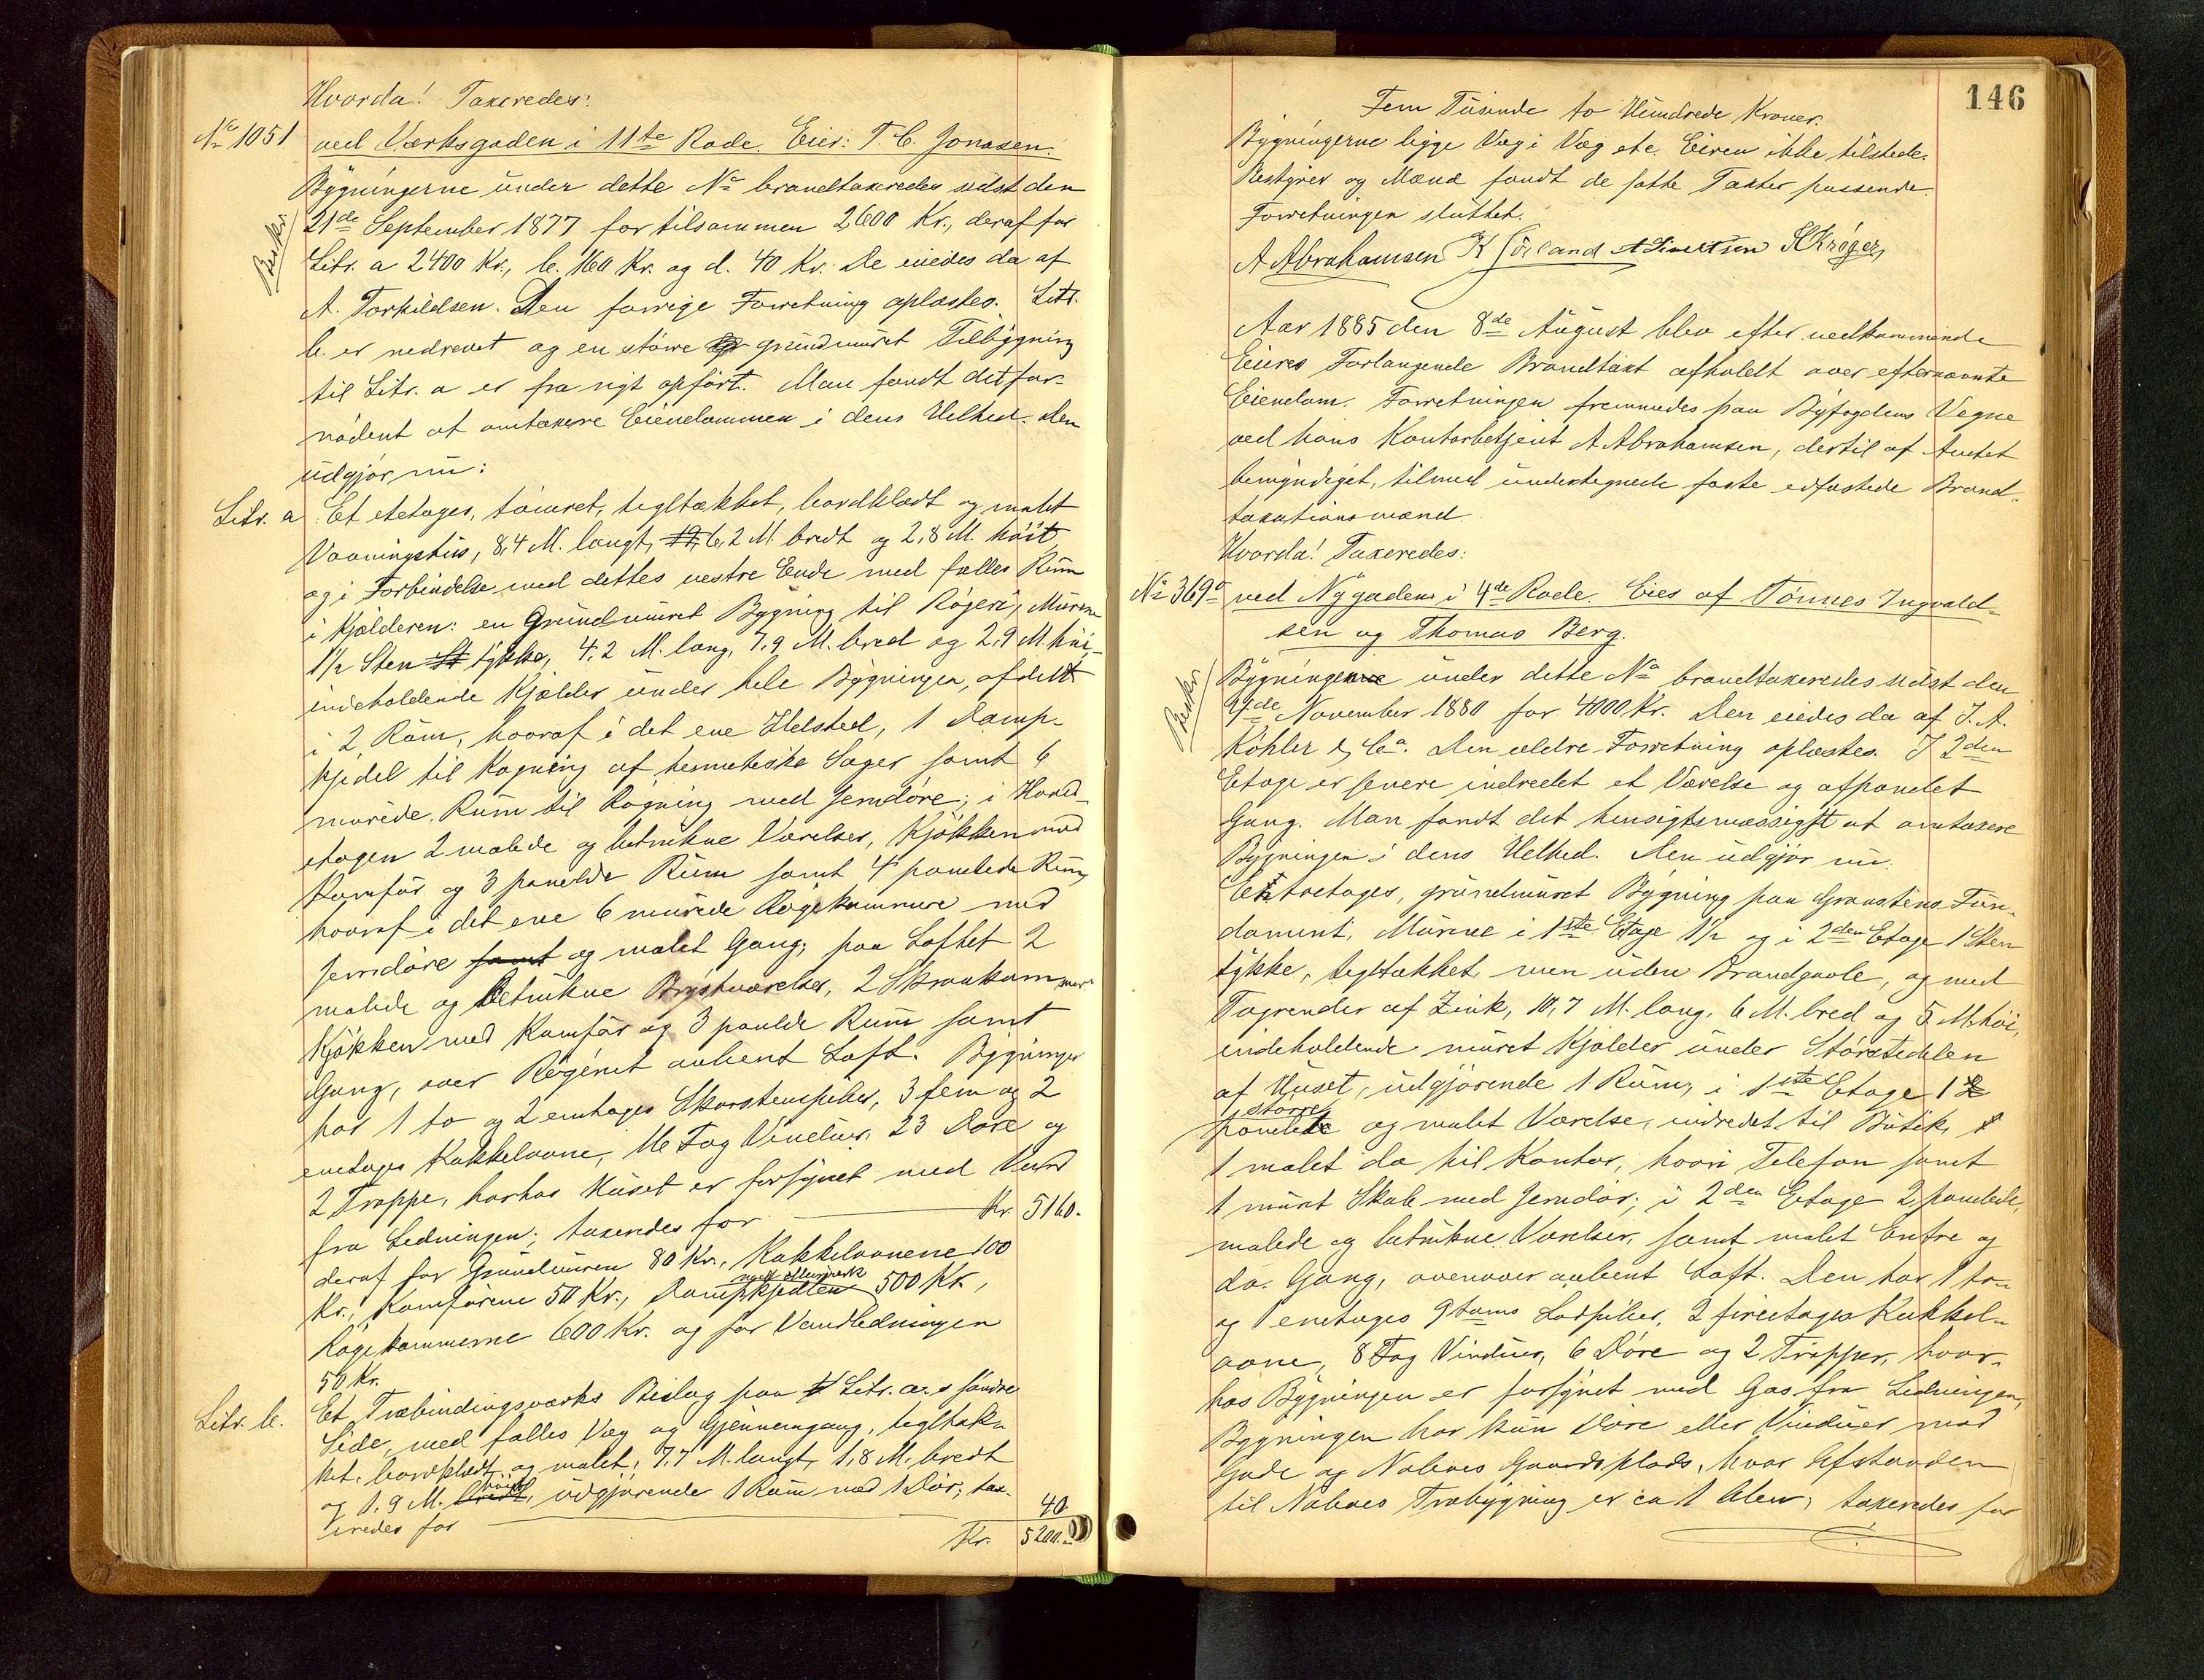 Hvorda! Taxeredes:
No 1051 ved Værksgaden i 11te Rode. Eier: T. C. Jonasen.
Bygningerne under dette No brandtaxeredes sidst den
Beskr.
21de September 1877 for tilsammen 2600 Kr., deraf for
Litr. a 2400 Kr., b. 160 Kr. og d. 40 Kr. De eiedes da af
A. Torkildsen. Den forrige Forretning oplæstes. Litr.
b. er nedrevet og en större grundmuret Tilbygning
til Litr. a er fra nyt opfört. Man fandt det for-
nödent at omtaxere Eiendommen i dens Helhed. Den
udgjör nu:
Litr. a. Et etetages, tömret, tegltækket, bordklædt og malet
Vaaningshus, 8,4 M. langt, 6,2 M. bredt og 2,8 M. höit
og i Forbindelse med dettes vestre Ende med fælles Rum
i Kjælderen: en Grundmuret Bygning til Rögeri, Murene
1 1/2 Sten tykke, 4,2 M. lang, 7,9 M. bred og 2,9 M höi,
indeholdende Kjælder under hele Bygningen, afdelt
i 2 Rum, hvoraf i det ene Ildsted, 1 Damp-
kjedel til Kogning af hermetiske Sager samt 6
murede Rum til Rögning med Jerndöre; i Hoved-
etagen 2 malede og betrukne Værelser, Kjökken med
Komfur og 3 panelde Rum samt 4 panelede Rum,
hvoraf i det ene 6 murede Rögekammere med
Jerndöre samt og malet Gang; paa Loftet 2
malede og betrukne Brystværelser, 2 Skraakammer
Kjökken med Komfur og 3 panlde Rum samt
Gang, over Rögeriet aabent Loft. Bygningen
har 1 to og 2 enetages Skorstenspiber, 3 fem og 2
enetages Kakkelovne, 16 Fag Vinduer, 23 Döre og
2 Trappe, hvorhos Huset er forsynet med Vand
fra Ledningen; taxeredes for Kr. 5160.
deraf for Grundmuren 80 Kr., Kakkelovnene 100
Kr., Komfurene 50 Kr., Dampkjedlen med Murværk 500 Kr.,
Rögekammerne 600 Kr. og for Vandledningen
50 Kr.
Litr. b. Et Træbindingsværks Bislag paa Litr. a.s söndre
Side, med fælles Væg og Gjennemgang, tegltæk-
ket, bordklædt og malet, 7,7 M. langt, 1,8 M. bredt
og 1.9 M. bredt höit, udgjörende 1 Rum med 1 Dör; tax-
eredes for 40
Kr. 5200.-
146
Fem Tusinde to Hundrede Kroner.
Bygningerne ligge Væg i Væg etc. Eieren ikke tilstede.
Bestyrer og Mænd fandt de satte Taxter passende.
Forretningen sluttet.
A Abrahamsen K Sörland A Sivertsen S Kröger
Aar 1885 den 8de August blev efter vedkommende
Eieres Forlangende Brandtaxt afholdt over efternævnte
Eiendom. Forretningen fremmedes paa Byfogdens Vegne
ved hans Kontorbetjent A Abrahamsen, dertil af Amtet
bemyndiget, tilmed undertegnede faste edfæstede Brand-
taxationsmænd.
Hvorda! Taxeredes:
No 369a ved Nygaden i 4de Rode. Eies af Tönnes Ingvald-
sen og Thomas Berg.
Beskr.
Bygningen under dette No brandtaxeredes sidst den
November 1880 for 4000 Kr. Den eiedes da af J. A.
Köhler & Co. Den ældre Forretning oplæstes. I 2den
Etage er senere indredet et Værelse og afpanelet
Gang. Man fandt det hensigtsmæssigst at omtaxere
Bygningen i dens Helhed. Den udgjör nu.
En toetages, grundmuret Bygning paa Granstens Fun-
dament, Murene i 1ste Etage 1 1/2 og i 2den Etage 1 Sten
tykke, tegltækket, men uden Brandgavle, og med
Tagrender af Zink, 10,7 M. lang, 6 M. bred og 5 M. höi,
indeholdende muret Kjælder under Störstedelen
af Huset, udgjörende 1 Rum; i 1ste Etage 1
större panelet og malet Værelse, indredet til Butik,
1 malet do til Kontor, hvori Telefon samt
1 muret Skab med Jerndör; i 2den Etage 2 panelede,
malede og betrukne Værelser, samt malet Entre og
do. Gang, ovenover aabent Loft. Den har 1 to-
og 1 enetages 9 toms Lodpiber, 2 fireetages Kakkel-
ovne, 8 Fag Vinduer, 6 Döre og 2 Trapper, hvor-
hos Bygningen er forsynet med Gas fra Ledningen,
Bygningen har kun Döre eller Vinduer mod
Gade og Naboes Gaardsplads, hvor Afstanden
til Naboes Træbygning er ca 1 Alen; taxeredes for